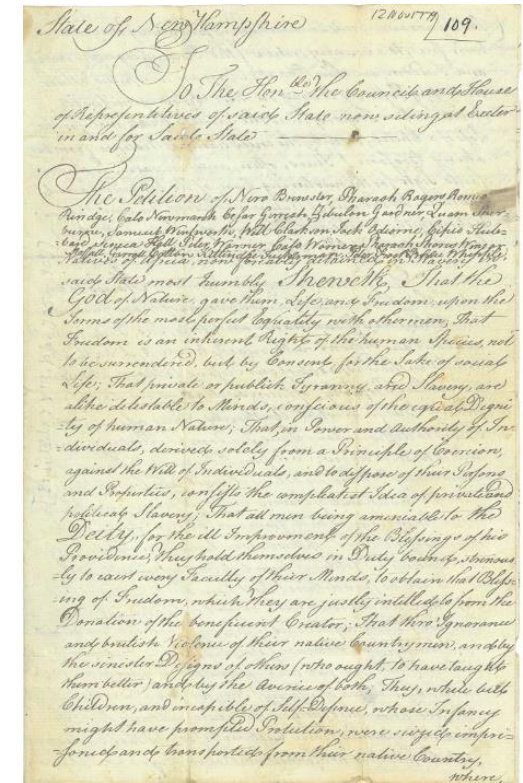 State of New Hampshire
12 Month 109.
To The Honble. The Council and House
of Representitives of said State now siting at Exeter
in and for Said State
The Petition of Nero Brewster, Pharaoh Rogers Romeo
Rindge, Cato Newmarch Cesar Gerrish Zebulon Gardner Quam Sher-
burne, Samuel Wentworth, Will Clarkson Jack Odiorne, Cipio Hub-
bard Seneca Hall Peter Warner, Cato Warner, Pharaoh Shores
Kittindge Tuckerman Peter Frost Prince Whipple
Natives of Africa, now forcibly detained in Slavery in
said State most humbly Sheweth, That the
God of Nature, gave them, Life, and Freedom, upon the
Terms of the most perfect Equality with other men; That
Freedom is an inherent Right of the human Species, not
to be surrendered, but by Consent, for the Sake of social
Life; That private or publick Tyranny, and Slavery, are
alike detestable to Minds, conscious of the equal Digni
-ty of human Nature; That, in Power and Authority of In-
-dividuals, derived solely from a Principle of Coercion,
against the Will of Individuals, and to dispose of their Persons
and Properties, consists the compleatest Idea of private and
political Slavery; That all men being ameniable to the
Deity, for the ill Improvement of the Blessings of his
Providence, They hold themselves in Duty bound, strenuous
-ly to exert every Faculty of their Minds, to obtain that Bless-
-ing of Freedom, which they are justly intitled to from the
Donation of the beneficent Creator; That thro' Ignorance
and brutish Violence of their native Countrymen, and by
the sinister Designs of others (who ought to have taught
them better) and by the Avarice of both; They, while but
Children, and incapible of Self-Defence, whose Infancy
might have prompted Protection, were seized, impri-
-soned and transported from their native Country,
where,